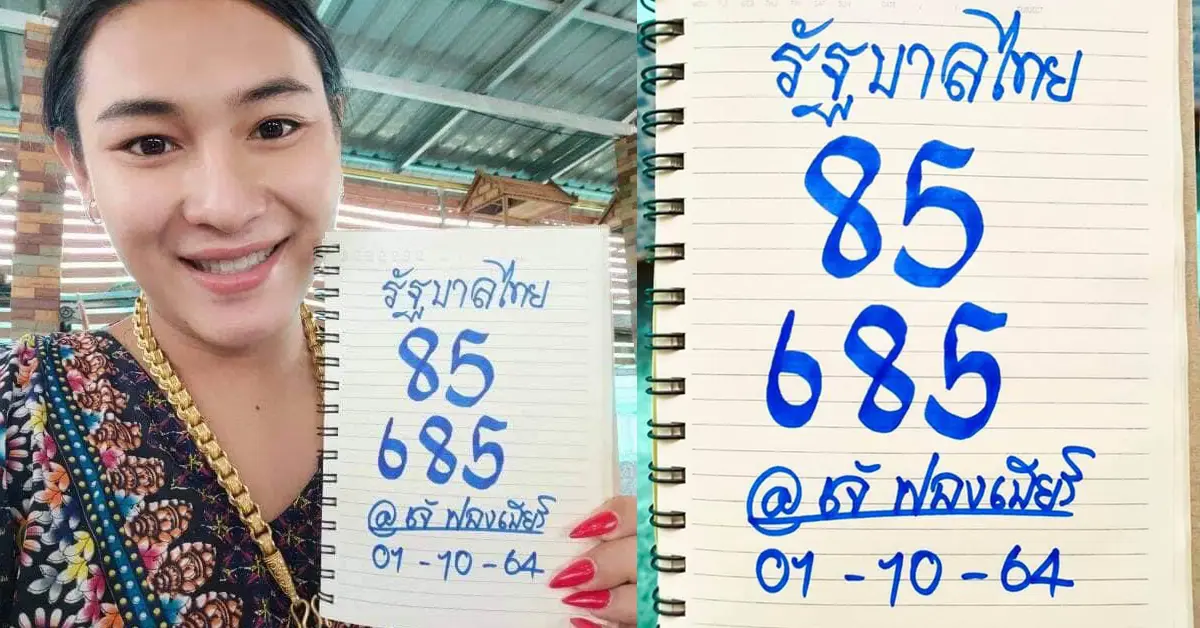 รัฐบาลไทย
85
685
@เจ๊ฟองเบียร์
01-10-64
รัฐบาลไทย
85
685
@เจ๊ฟองเบียร์
01-10-64